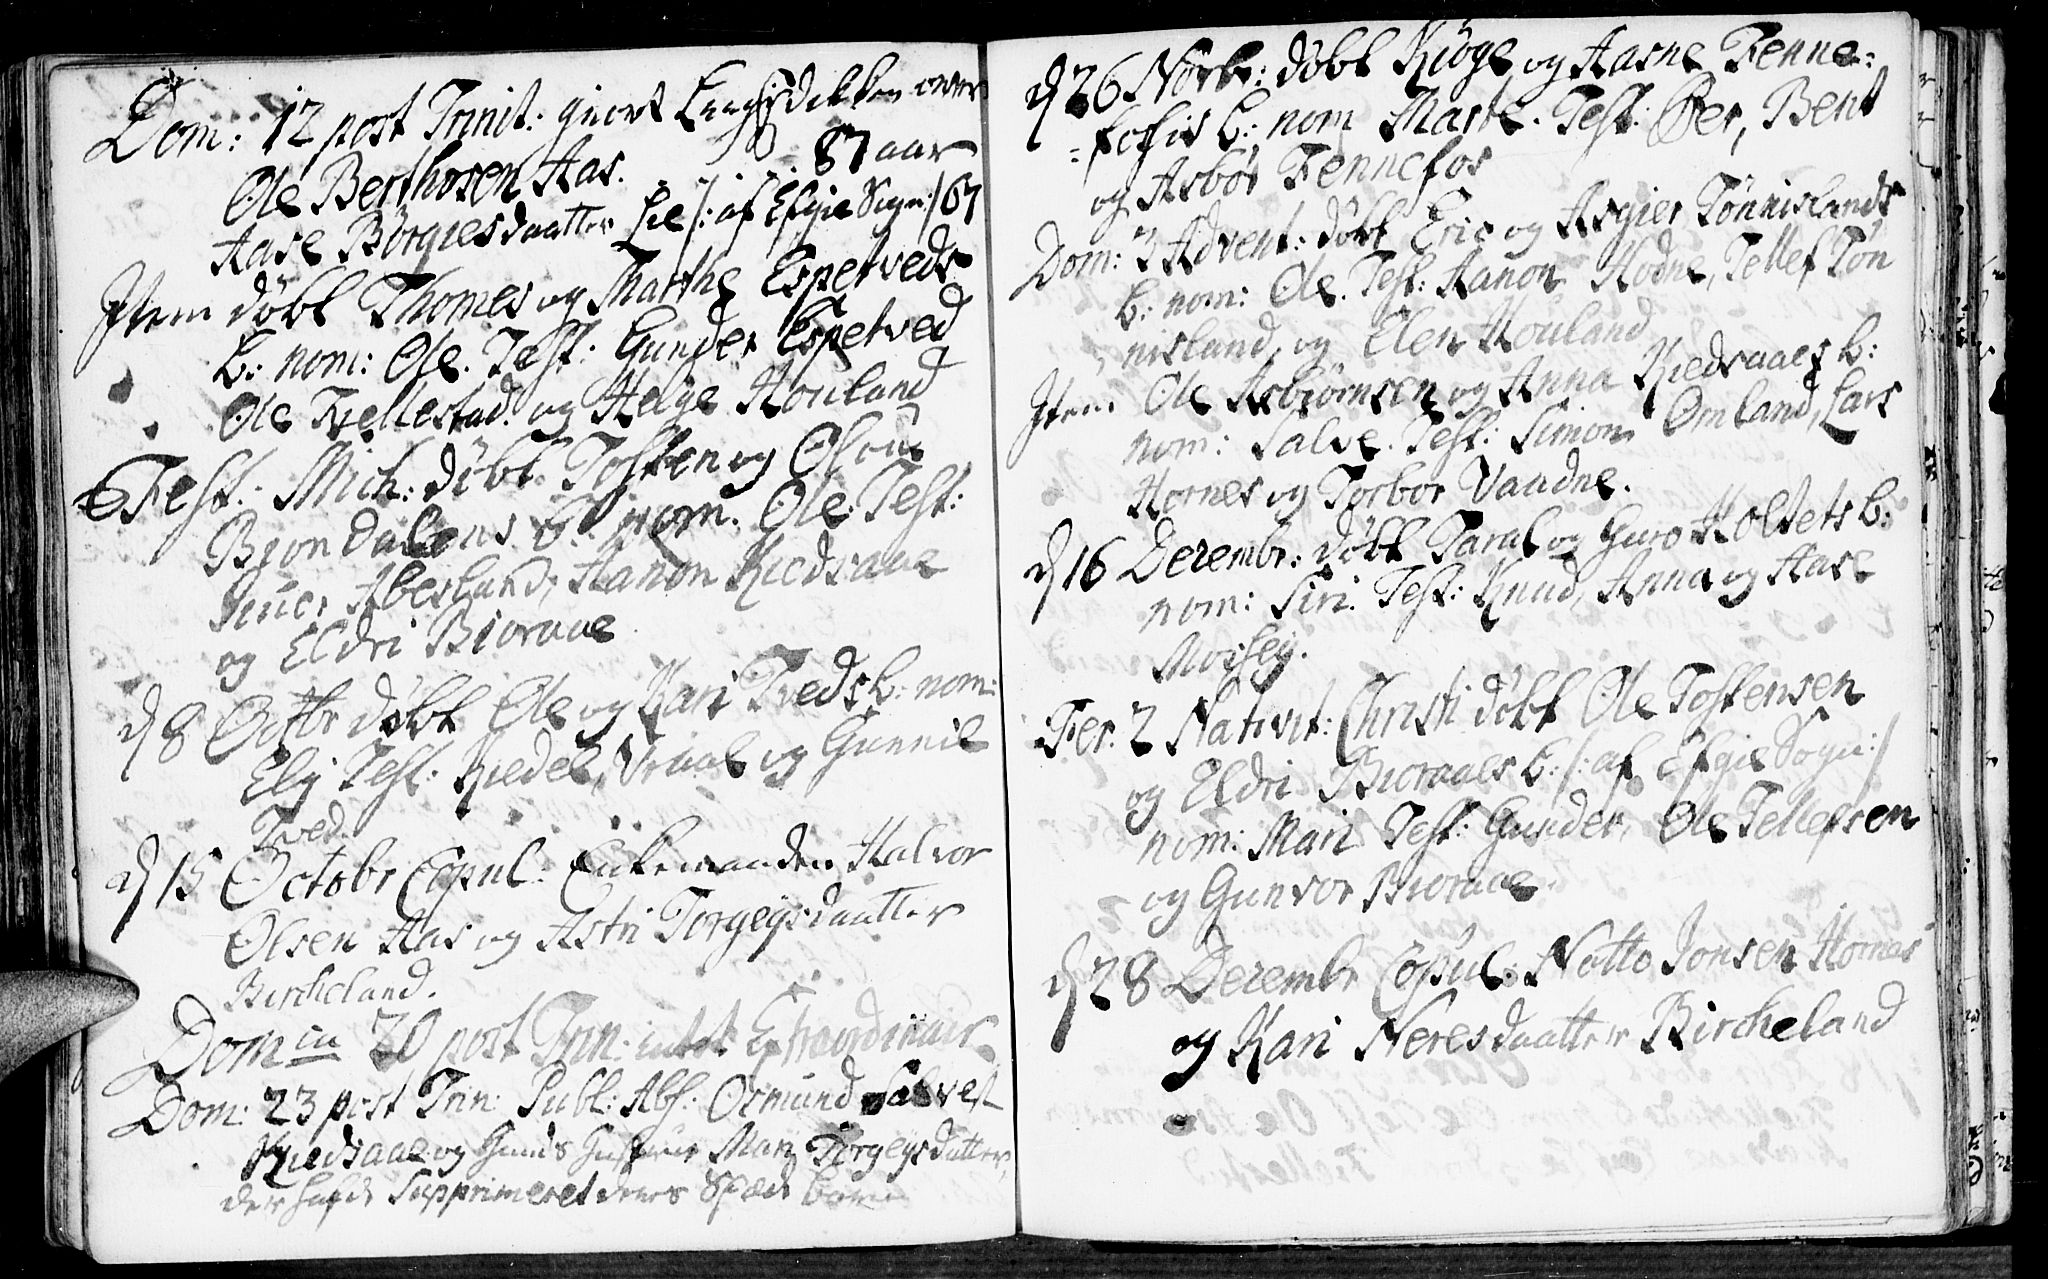 Dom: 12 post Trinit: giort Liigprædikken over
Ole Berthosen Aas. 87 aar
Aase Börgiesdaatter Lie /: af Efgie Sogn :/ 67
Item döbt Thomes og Marthe Espetveds
b: nom: Ole. Test: Gunder Espetved
Ole Kellestad og Helge Houland
Fest: Mich: döbt Tosten og Olou
Bjondalens b: nom. Ole. Test:
Iver Abesland, Aanon Kiedsaae
og Eldri Bioraae
d 8 Octbr döbt Ole og Kari Tveds b: nom:
Eli Test: Kiedel, Vraal og Gunnil
Tved.
d 15 Octobr Copul: Enkemanden Halvor
Olsen Aas og Astri Torgeysdaatter
Bircheland.
Dom in 20 post Trin: intet Extraordinair
Dom: 23 post Trin: Publ: Abs: Osmund Salves:
Kiedsaae og hands hustrue Mari Torgeysdatter,
der hafde Supprimeret deres Spæde barn
d 26 Novbr: döbt Kiöge og Aasne Fenne=
=fossis b: nom Marte. Test: Per, Bent
og Asbör Fennefos
Dom: 3 Advent: döbt Eric og Asgier Tönnislands
b: nom: Ole. Test: Aanon Hodne, Tellef Tön
nisland, og Elen Houland
Item Ole Asbiörnsen og Anna Kiedsaaes b:
nom: Salve. Test: Simon Omland, Lars
Hornes og Torbor Vandne.
d 16 Decembr: döbt Taral og Guro Holtets b:
nom: Siri. Test: Knud, Anna og Aase
Moisey.
Fer. 2 Nativit: Christi döbt Ole Tostensen
og Eldri Bioraaes b: /: af Efgie Sogn :/
nom: Mari Test: Gunder, Ole Tellefsen
og Gunvor Bioraae.
d 28 Decembr Copul: Notto Jonsen Hornes
og Kari Neresdaatter Bircheland